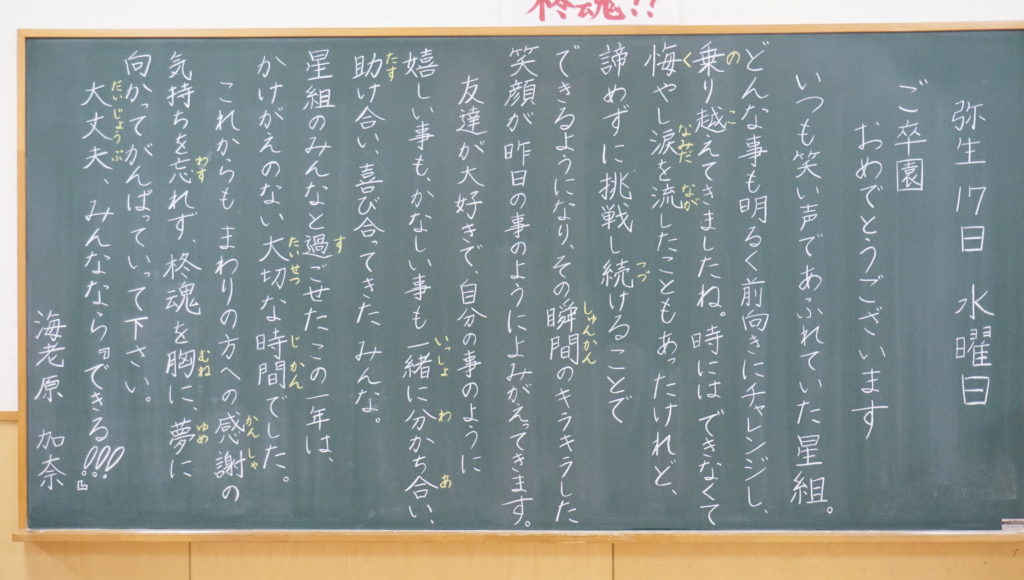 柊魂!!
弥生17日 水曜日
ご卒園
おめでとうございます
いつも笑い声であふれていた星組。
どんな事も明るく前向きにチャレンジし、
乗り越えてきましたね。時にはできなくて
悔やし涙を流したこともあったけれど、
諦めずに挑戦し続けることで
できるようになり、その瞬間のキラキラした
笑顔が昨日の事のようによみがえってきます。
友達が大好きで、自分の事のように
嬉しい事も、かなしい事も一緒に分かち合い、
助け合い、喜び合ってきたみんな。
星組のみんなと過ごせたこの一年は、
かけがえのない大切な時間でした。
これからもまわりの方への感謝の
気持ちを忘れず、柊魂を胸に、夢に
向かってがんばっていって下さい。
大丈夫、みんななら『できる!!!』
海老原 加奈